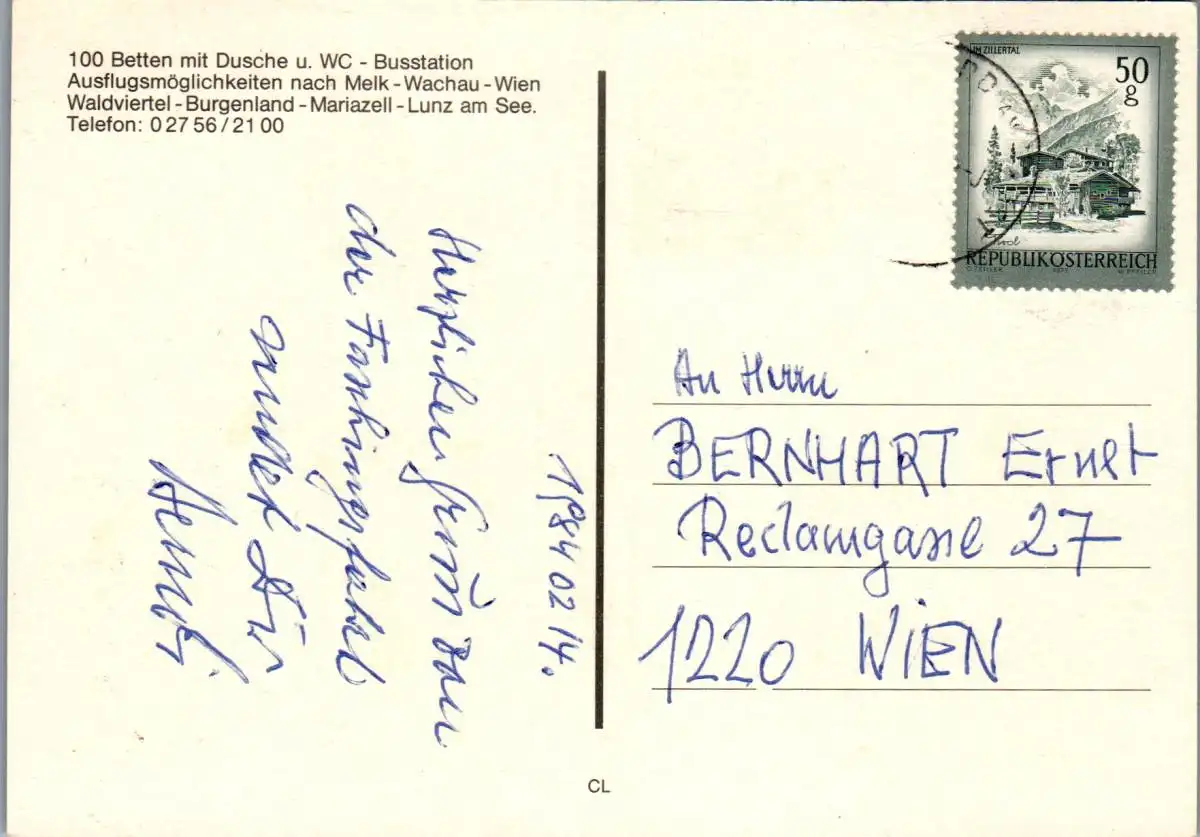 100 Betten mit Dusche u. WC - Busstation
Ausflugsmöglichkeiten nach Melk - Wachau - Wien
Waldviertel - Burgenland - Mariazell - Lunz am See.
Telefon: 0 27 56 / 21 00
1984 02 14.
Herzlichen Gruß von
der Faschingsfahrt
sendet Dir
IM ZILLERTAL
50
g
Tirol
REPUBLIK ÖSTERREICH
An Herrn
BERNHART Ernst
Reclamgasse 27
1220 WIEN
CL